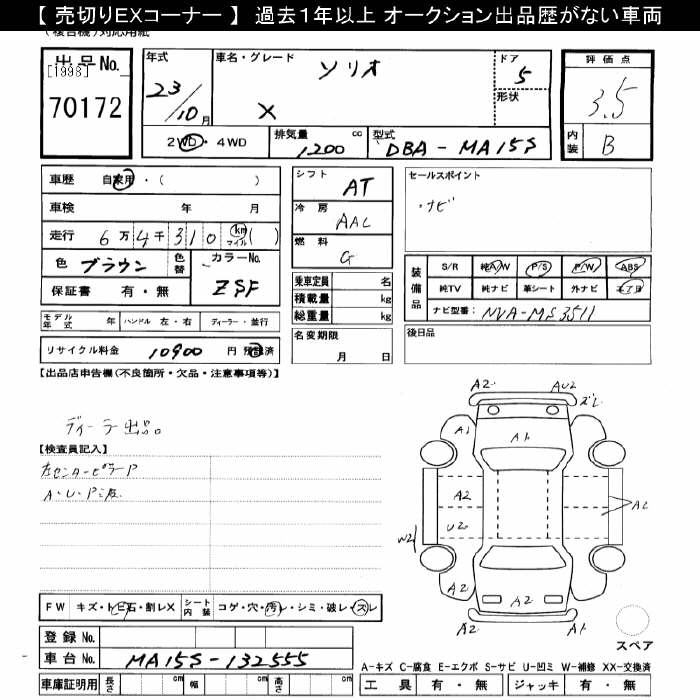 【 売切りEXコーナー 】 過去1年以上 オークション出品歴がない車両
出品No.
[1998]
70172
年式
23/10月
車名・グレード
ソリオ
X
ドア
5
形状
2WD・4WD
排気量
1200
cc
型式
DBA-MA15S
評価点
3.5
内装
B
車歴 自家用・( )
車検 年 月
走行 6万4千310 km マイル ( )
色 ブラウン
色替
カラーNo.
ZSF
保証書 有・無
モデル年式 年
ハンドル 左・右
ディーラー・並行
リサイクル料金 10900 円 預託済
シフト AT
冷房 AAC
燃料 G
乗車定員 名
積載量 kg
総重量 kg
名変期限
月 日
セールスポイント
・ナビ
装備品
S/R 純A/W P/S P/W ABS
純TV 純ナビ 革シート 外ナビ
ナビ型番: NVA-MS3511
後日品
【出品店申告欄(不良箇所・欠品・注意事項等)】
ディーラー出品。
【検査員記入】
左センターピラーP
A・U・P
A2 AU2
A1 A1
A2
U2
W2
A2 A2 A2
A2 A1
スペア
FW キズ・トビ石・割レX
シート内装 コゲ・穴・汚レ・シミ・破レ・スレ
登録No.
車台No. MA15S-132555
車庫証明用 長さ cm 幅 cm 高さ cm
A-キズ C-腐食 E-エクボ S-サビ U-凹ミ W-補修 XX-交換済
工具 有・無 ジャッキ 有・無